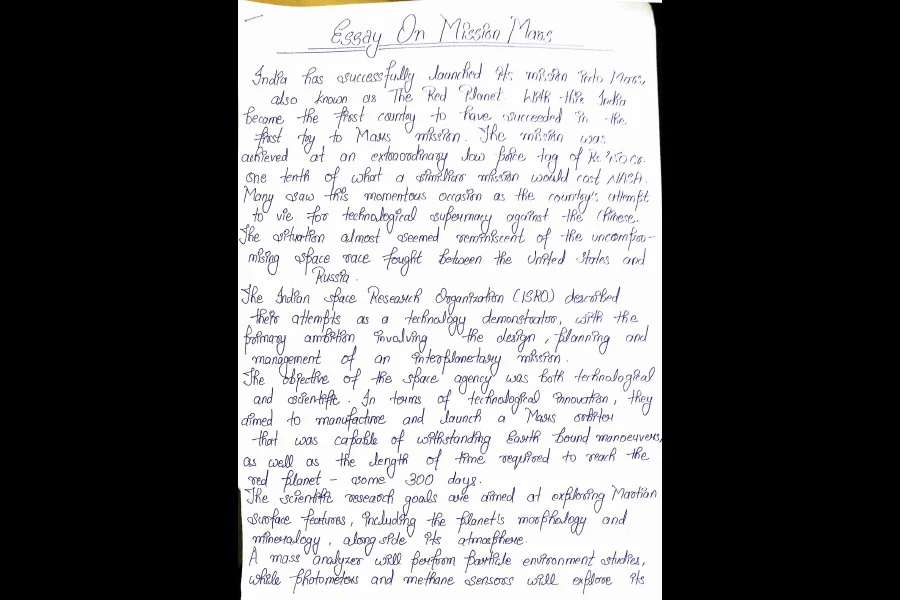 Essay On Mission Mars
India has successfully launched its mission into Mars,
also known as The Red Planet. With this India
became the first country to have succeeded in the
first try to Mars mission. The mission was
achieved at an extraordinary low price tag of Rs 450 Cr.
one tenth of what a similar mission would cost NASA.
Many saw this momentous occasion as the country's attempt
to vie for technological supermacy against the Chinese.
The situation almost seemed reminiscent of the uncompro-
mising space race fought between the United States and
Russia.
The Indian space Research Organization (ISRO) described
their attempts as a technology demonstrator, with the
primary ambition involving the design, planning and
management of an interplanetary mission.
The objective of the space agency was both technological
and scientific. In terms of technological innovation, they
aimed to manufacture and launch a Mars orbiter
that was capable of withstanding Earth bound manoeuvers,
as well as the length of time required to reach the
red planet - some 300 days.
The scientific research goals are aimed at exploring Martian
surface features, including the planet's morphology and
mineralogy, along side its atmosphere.
A mass analyzer will perform particle environment studies,
while photometers and methane sensors will explore its